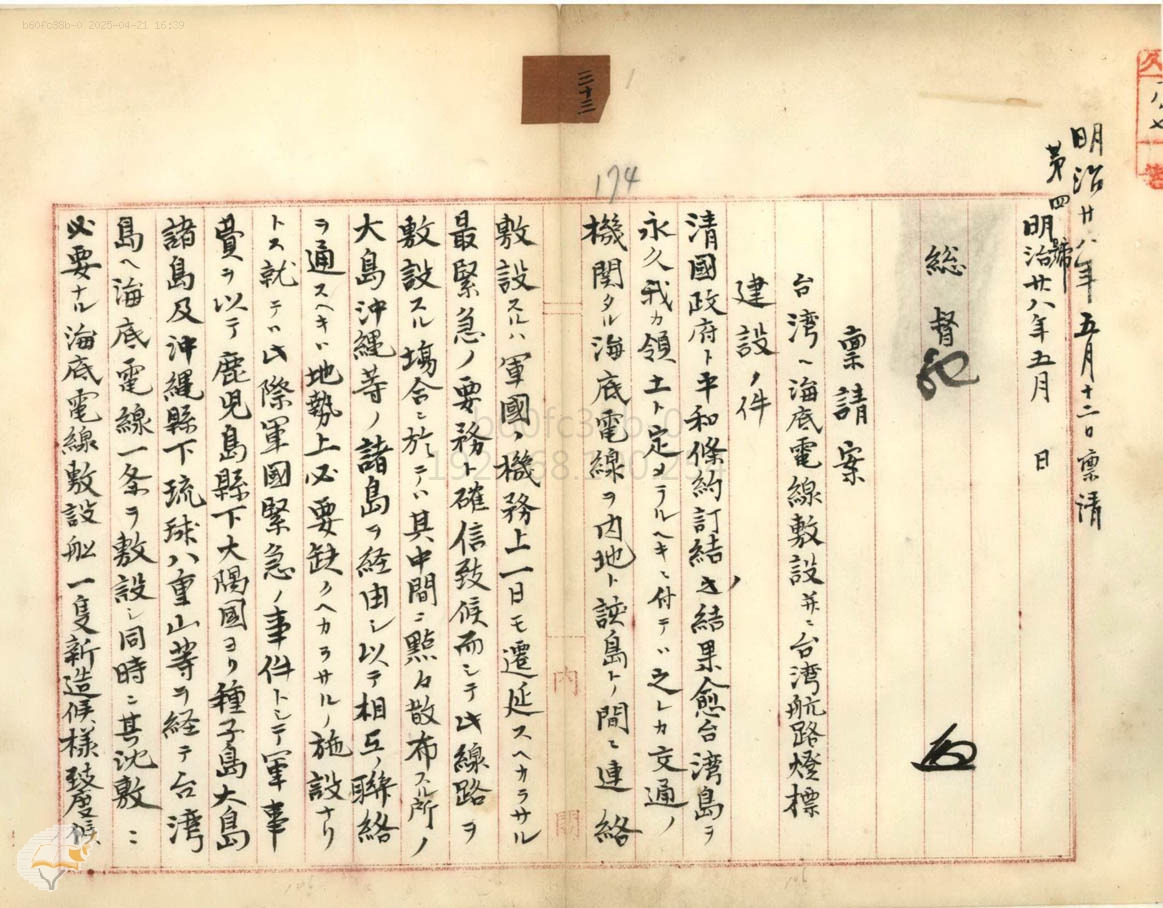 b60fc38b-0 2025-04-21 16:39
三十三
174
明治廿八年五月十二日禀請
第四號
明治廿八年五月　日
総督
禀請案
台湾ヘ海底電線敷設并ニ台湾航路燈標
建設ノ件
清國政府ト平和條約訂結ノ結果愈台湾島ヲ
永久我カ領土ト定メラルヘキニ付テハ之レカ交通ノ
機関タル海底電線ヲ内地ト該島トノ間ニ連絡
敷設スルハ軍國ノ機務上一日モ遷延スヘカラサル
最緊急ノ要務ト確信致候而シテ此線路ヲ
敷設スル場合ニ於テハ其中間ニ點々散布スル所ノ
大島沖縄等ノ諸島ヲ経由シ以テ相互ノ聯絡
ヲ通スヘキハ地勢上必要缺クヘカラサルノ施設ナリ
トス就テハ此際軍國緊急ノ事件トシテ軍事
費ヲ以テ鹿児島縣下大隅國ヨリ種子島大島
諸島及沖縄縣下琉球八重山等ヲ経テ台湾
島ヘ海底電線一条ヲ敷設シ同時ニ其沈敷ニ
必要ナル海底電線敷設船一隻新造候様致度候
内閣
b60fc38b-0